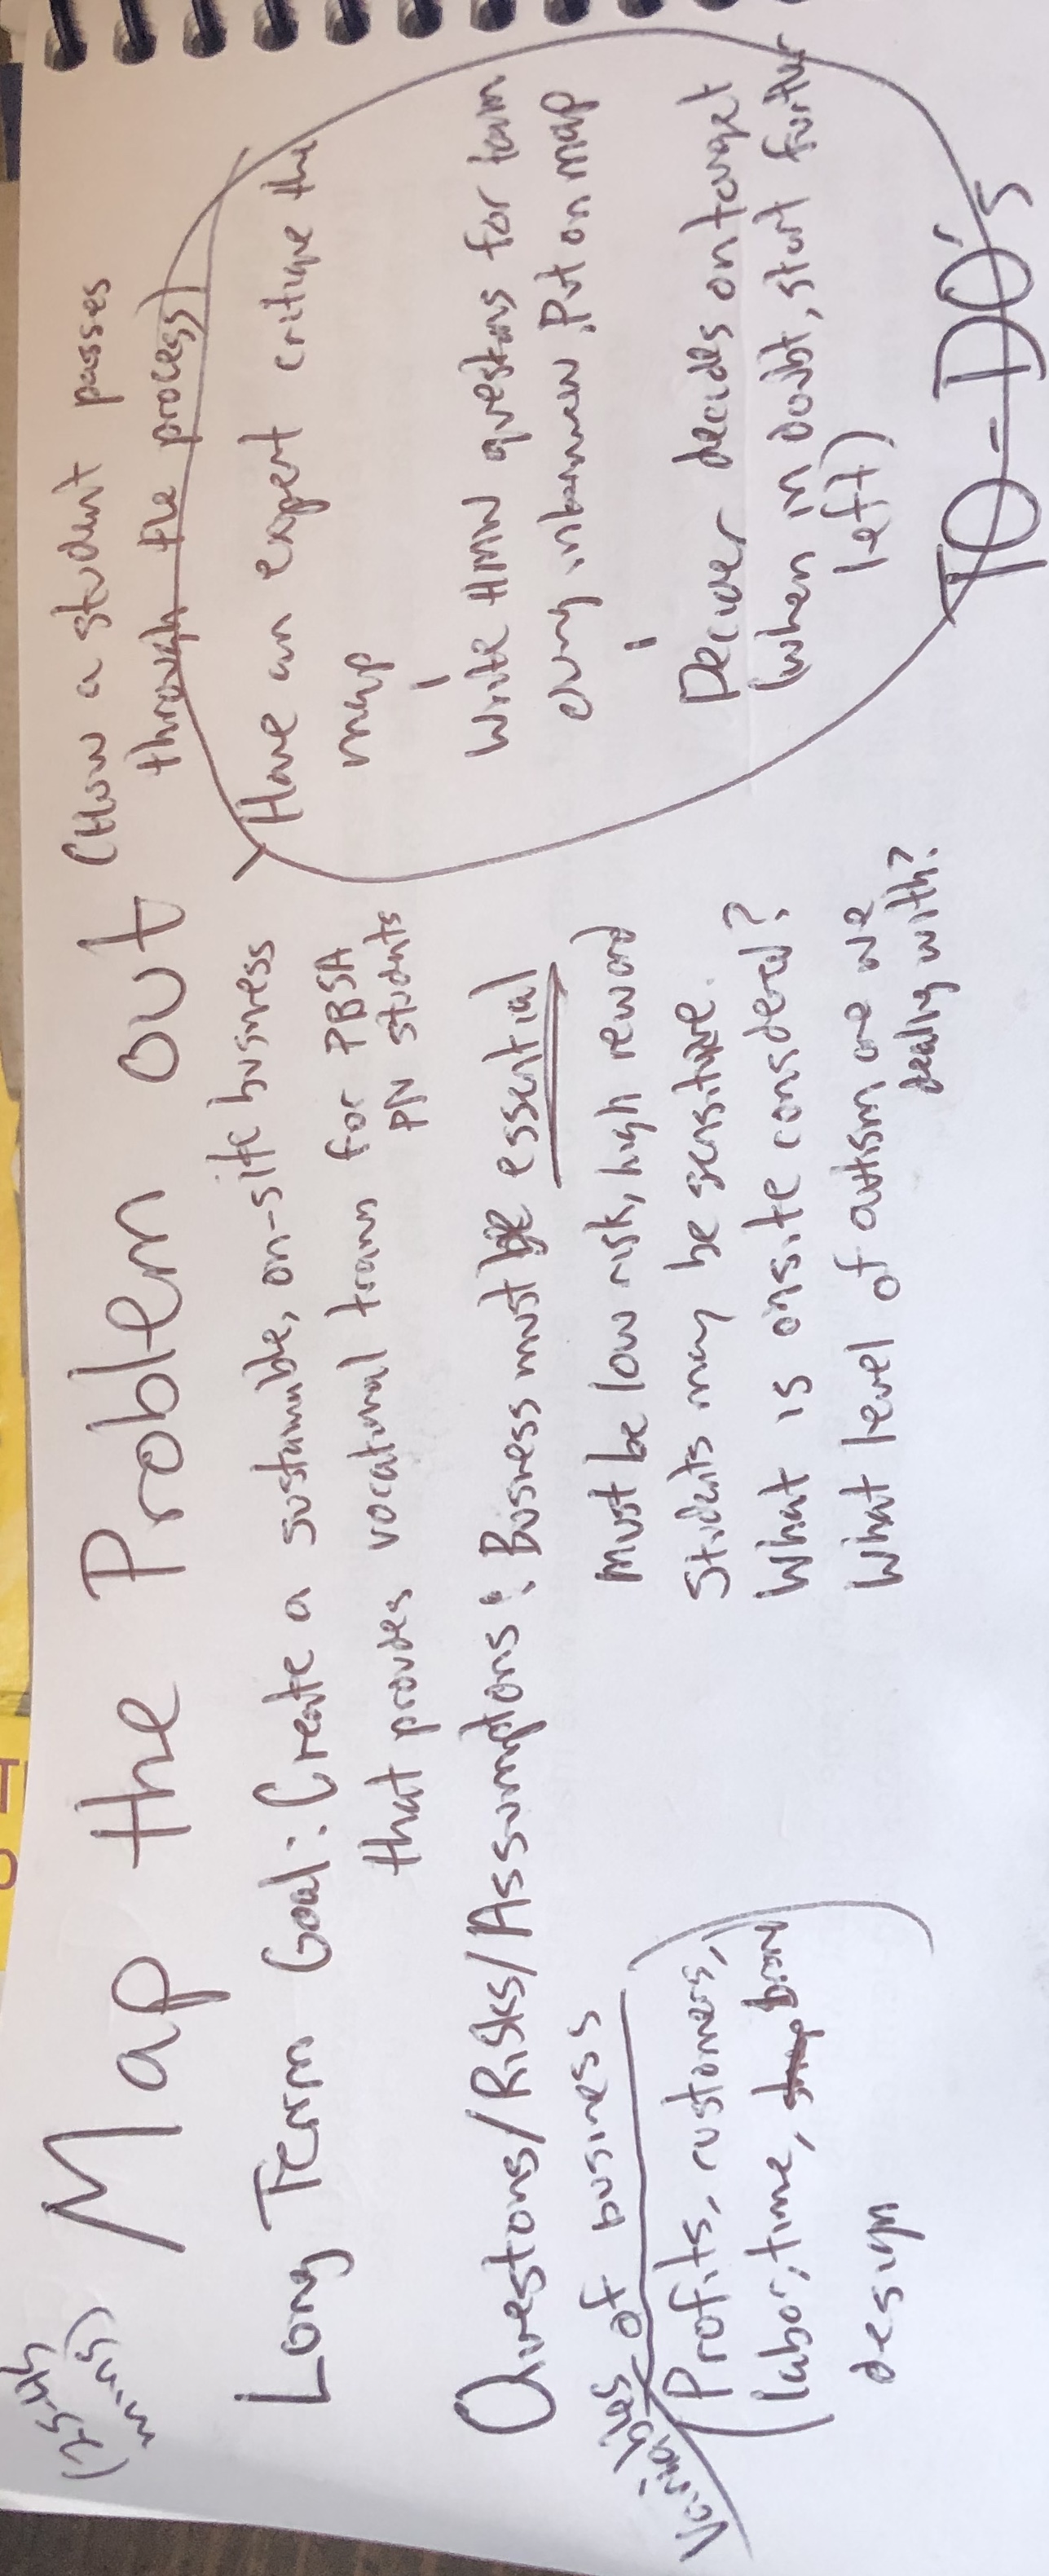 (25-45 mins)
Map the Problem out
(How a student passes
through the process)
Long Term Goal: Create a sustainable, on-site business
that provides vocational train for PBSA
PN students
Questions/Risks/Assumptions: Business must be essential
must be low risk, high reward
Students may be sensitive.
What is onsite considered?
What level of autism are we
dealing with?
Variables of business
(Profits, customers,
labor, time, brand
design
Have an expert critique the
map
-
Write HMW questions for team
every interview. Put on map
-
Decider decides on target
(when in doubt, start further
left)
TO-DO's